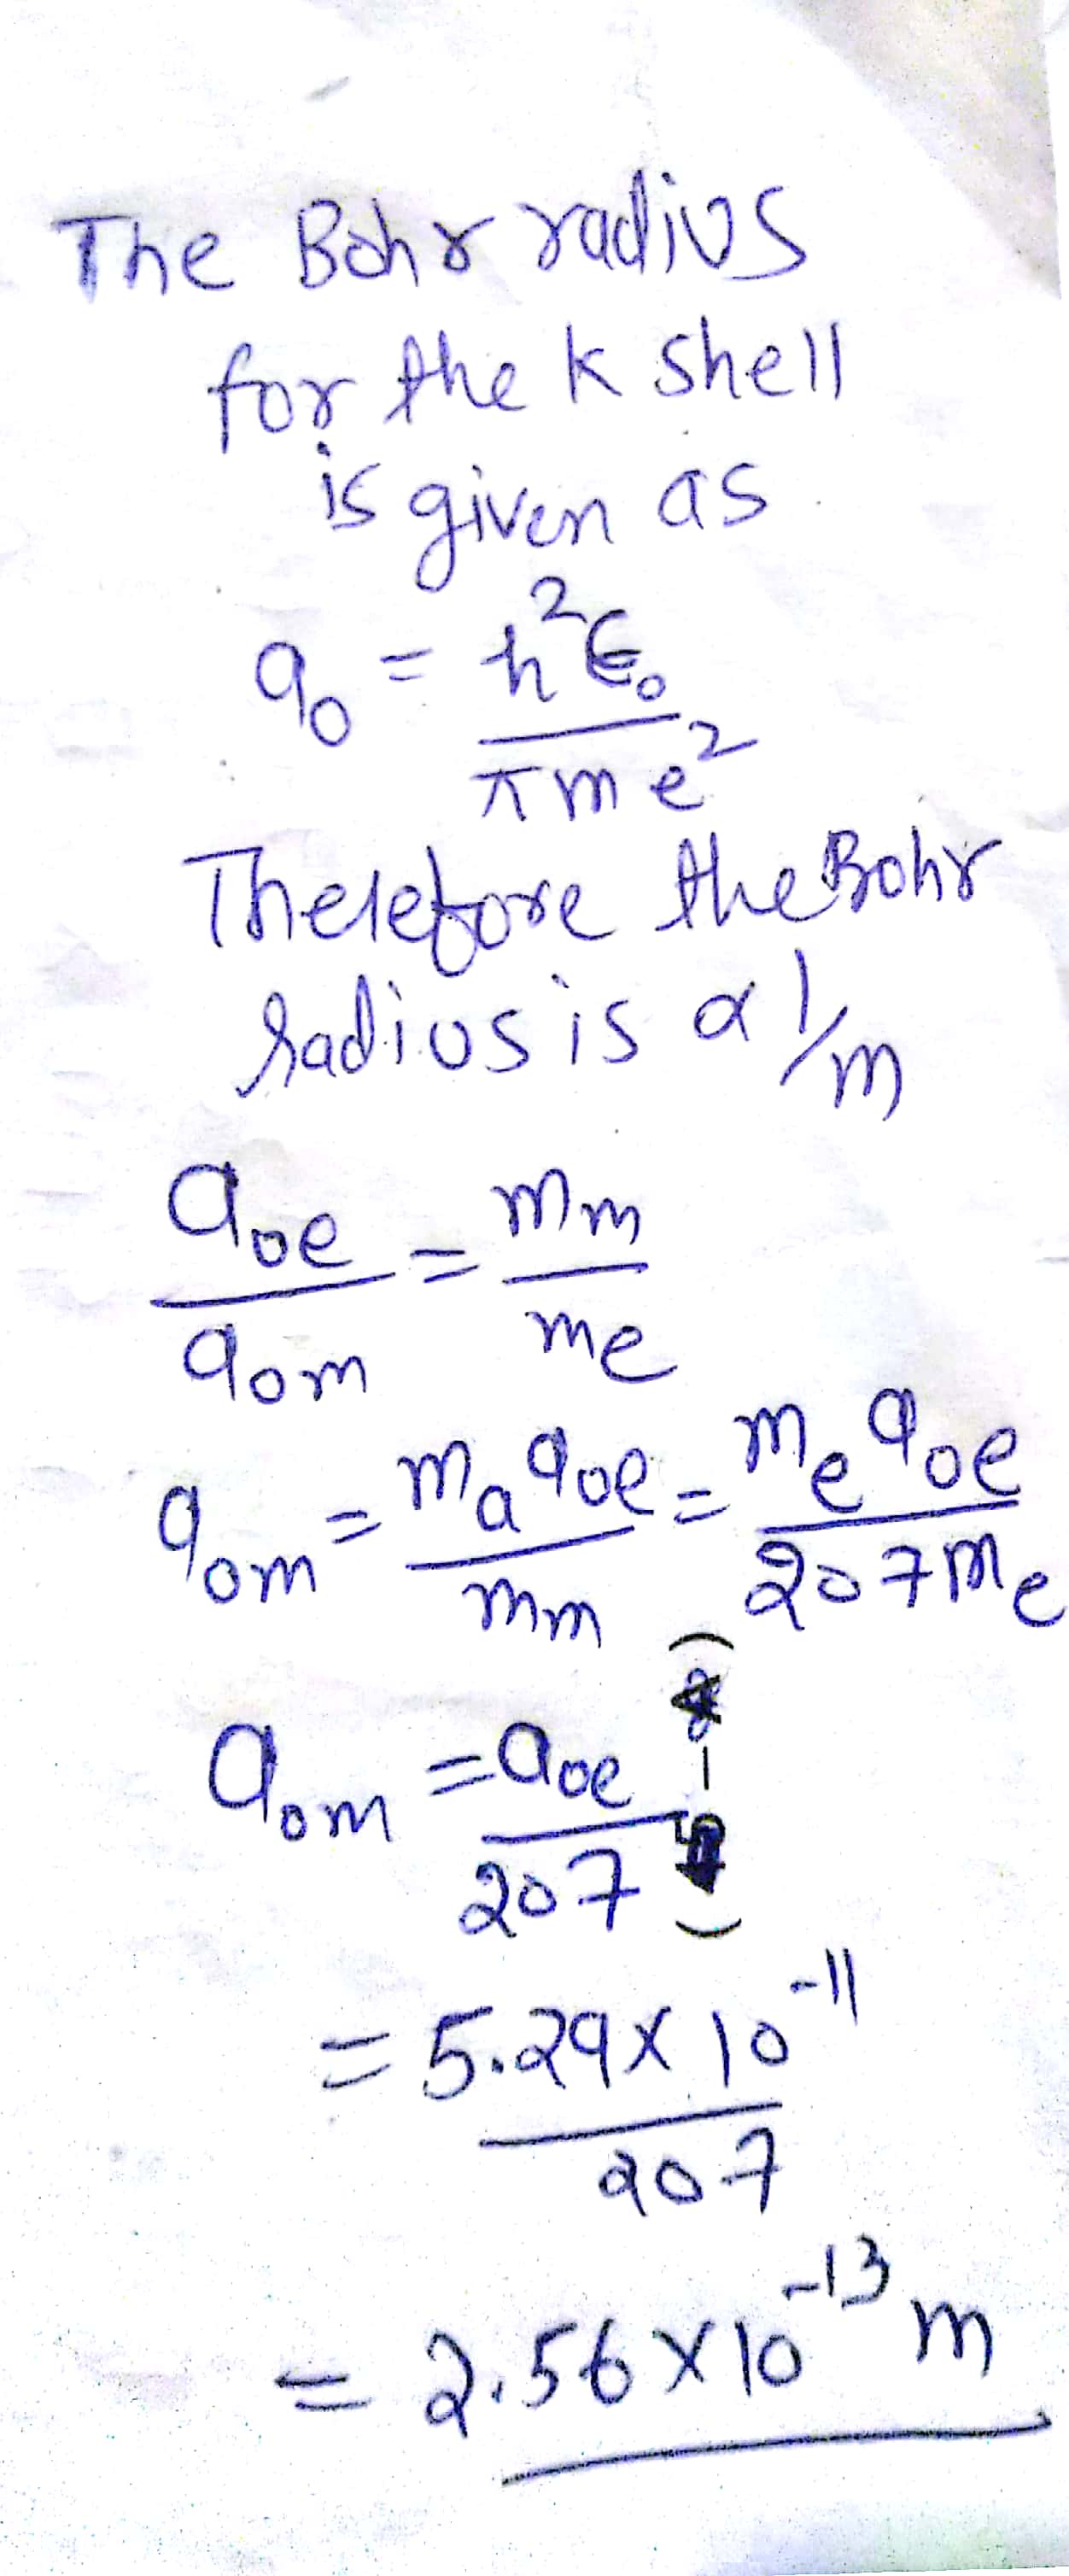 The Bohr radius
for the K shell
is given as
a₀ = h²ϵ₀ / πme²
Therefore the Bohr
radius is α 1/m
a₀e / a₀m = mm / me
a₀m = ma a₀e / mm = me a₀e / 207 me
a₀m = a₀e / 207
= 5.29 × 10⁻¹¹ / 207
= 2.56 × 10⁻¹³ m